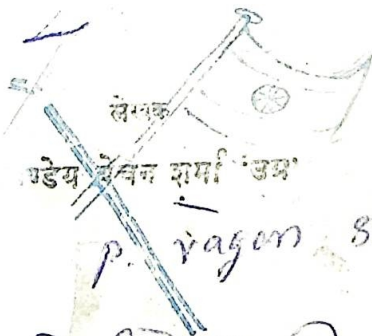 लेखक
ण्डेय बेचन शर्मा 'उग्र'
p. vagon s